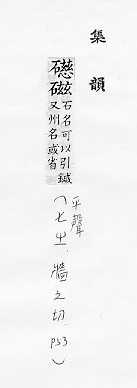 集韻
礠磁石名可以引鍼
又州名或省
(平聲 七㞢 牆之切 P53)